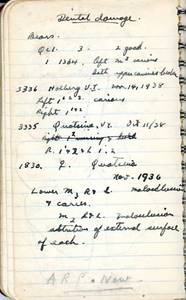 Dental damage.
Bears.
Q.C.I. 3. 2 good.
1 1364. left m² carious
both upper canines broken
3336 Holberg V.I. Nov. 14, 1938
left 1 & 2. carious
Right 1 & 2
3335 Quatsino, V.I. Oct 11/38
Right
R. 1 & 2 L 1, 2
1830. ♀. Quatsino
Nov - 1936
Lower M₂ R & L malocclusion
& caries.
M₂ R & L. malocclusion
attrition of external surface
of each.